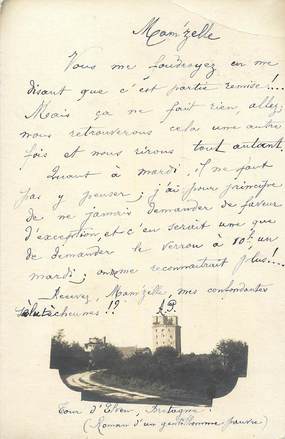 Mam'zelle
Vous me foudroyez en me
disant que c'est partie remise!...
Mais ça ne fait rien, allez;
nous retrouverons cela une autre
fois et nous rirons tout autant.
Quant à mardi, il ne faut
pas y penser; j'ai pour principe
de ne jamais demander de faveur
d'exception, et c'en serait une que
de demander le verrou à 10h un
mardi; on me reconnaîtrait plus!...
Recevez, Mam'zelle, mes condondantes
!?
Tour d'Elven, Bretagne
(Roman d'un gentilhomme pauvre)